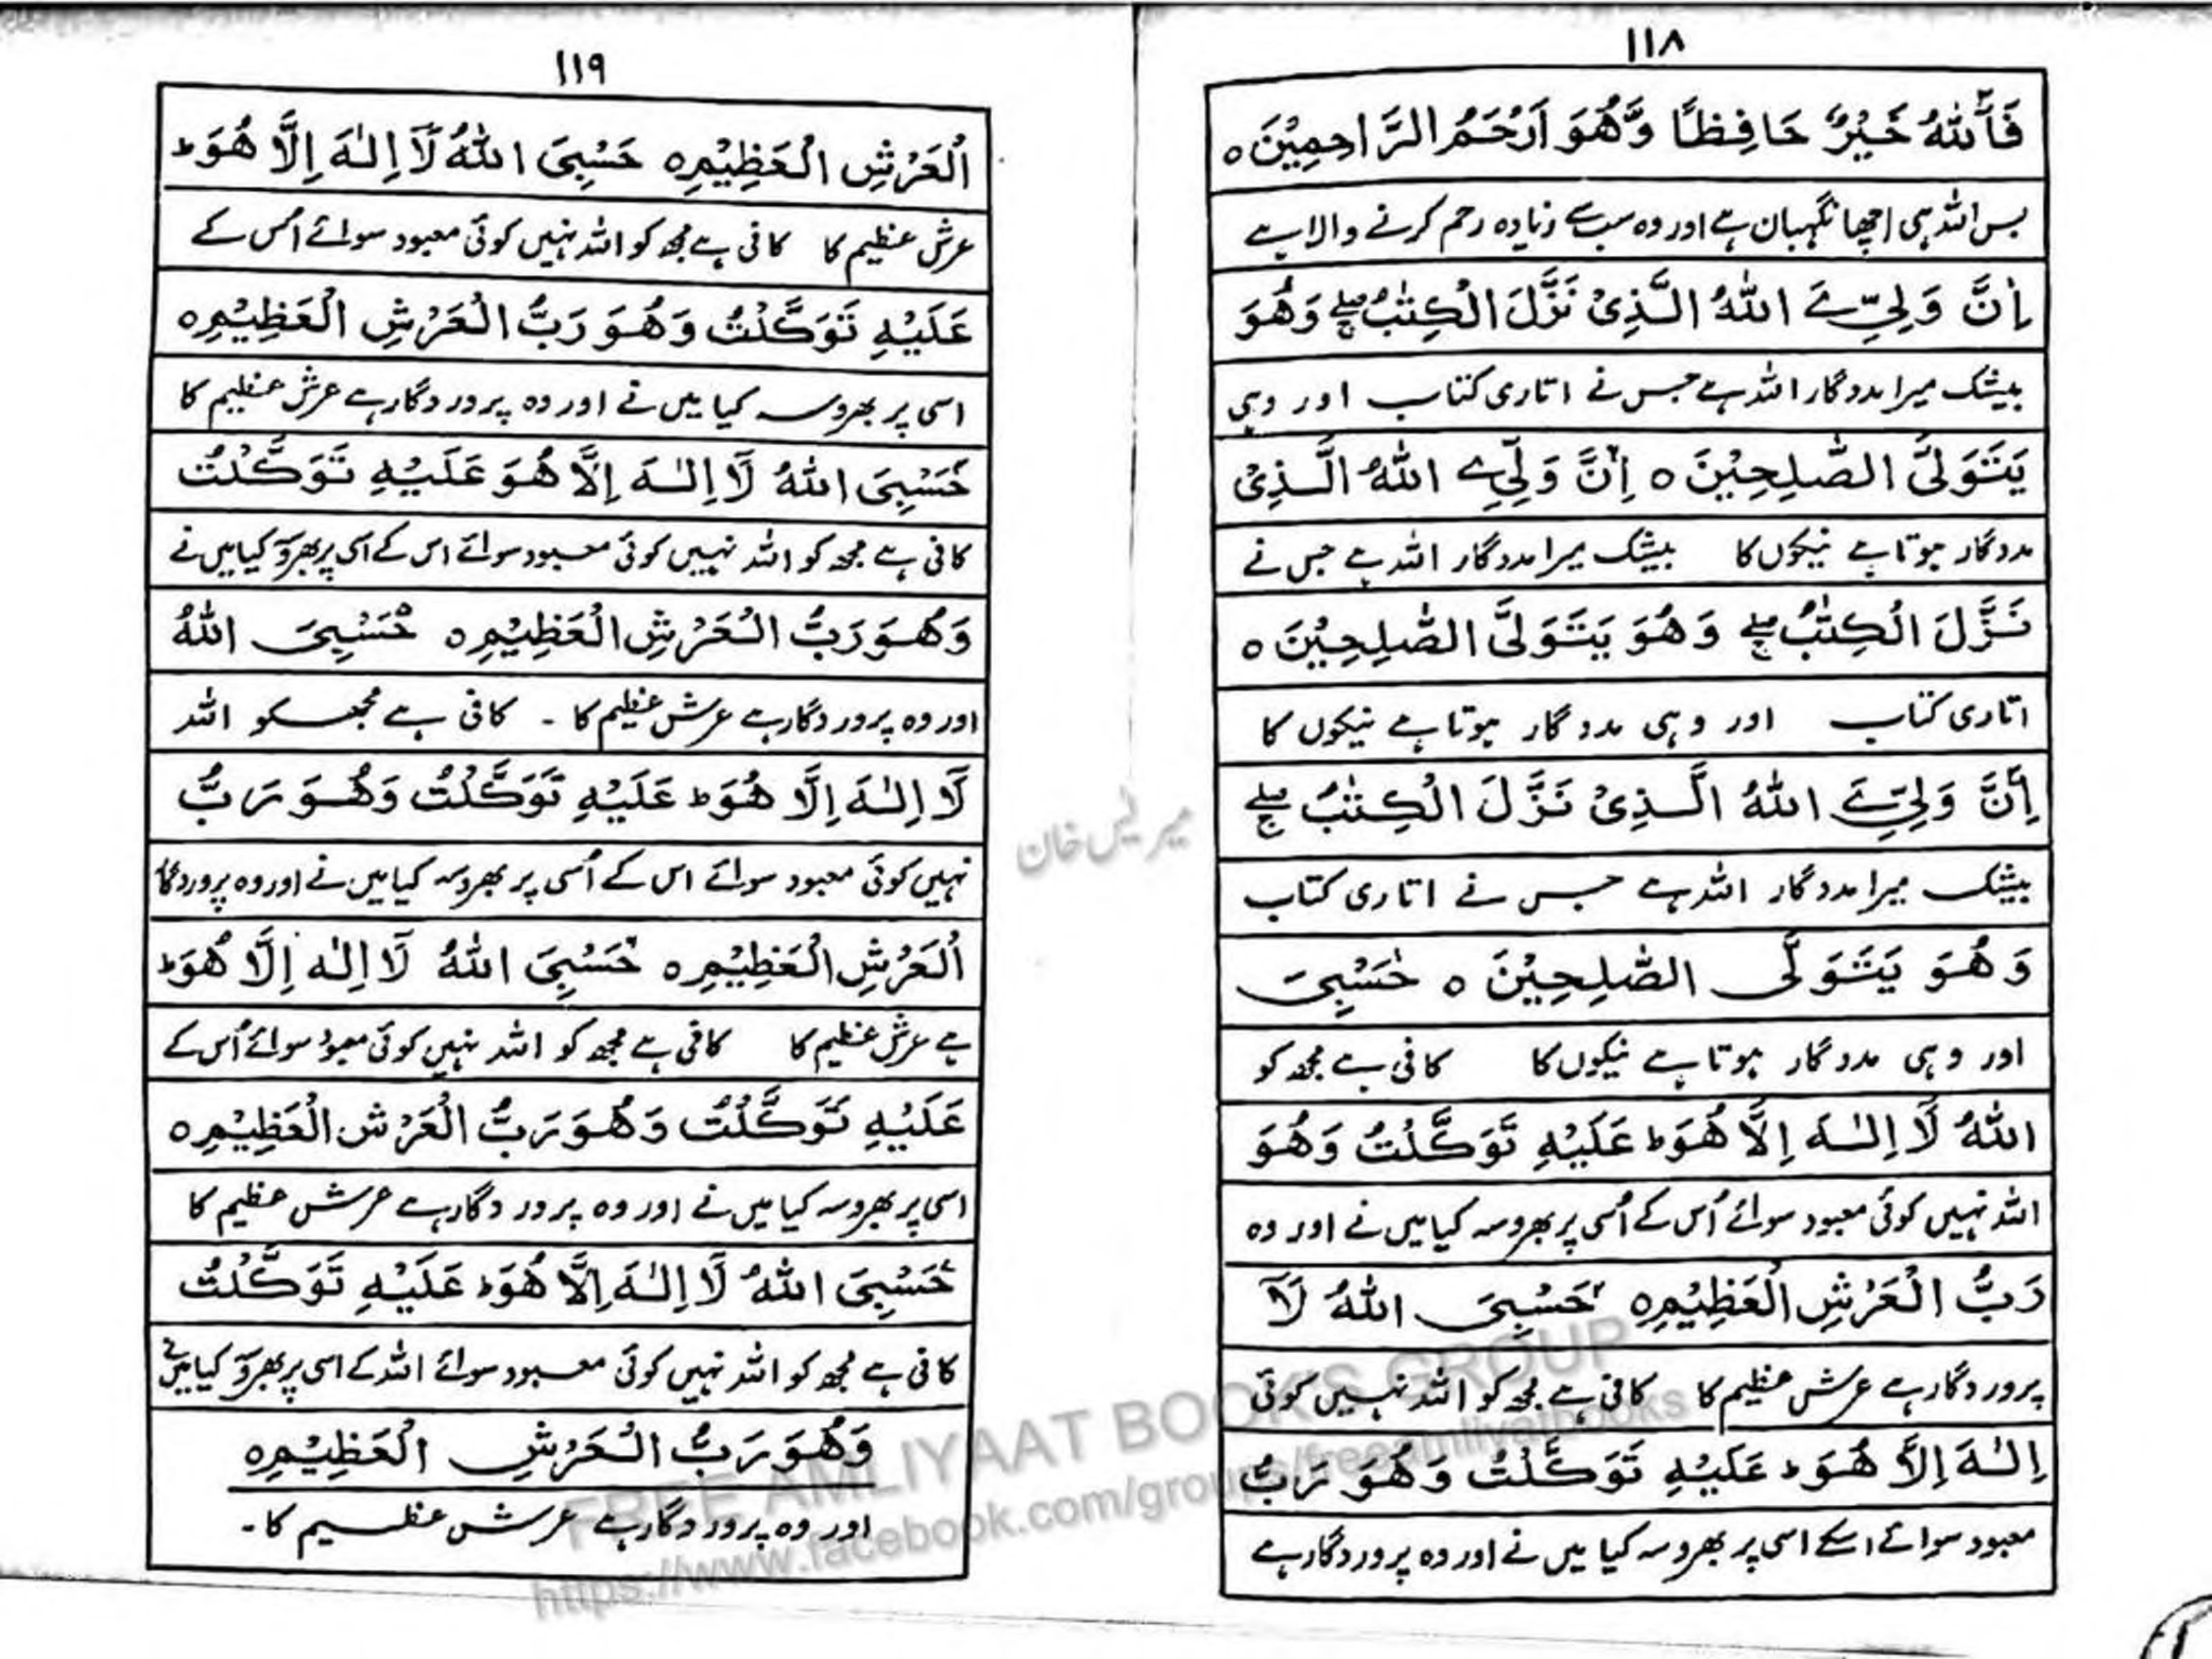 ۱۱۸
فَاللّٰهُ خَيْرٌ حَافِظًا وَّهُوَ اَرْحَمُ الرَّاحِمِيْنَ ○
بس اللہ ہی اچھا نگہبان ہے اور وہ سب سے زیادہ رحم کرنے والا ہے
اِنَّ وَلِیِّےَ اللّٰهُ الَّذِیْ نَزَّلَ الْكِتٰبَ صلے وَهُوَ
بیشک میرا مددگار اللہ ہے جس نے اتاری کتاب اور وہی
يَتَوَلَّی الصّٰلِحِيْنَ ○ اِنَّ وَلِیِّےَ اللّٰهُ الَّذِیْ
مددگار ہوتا ہے نیکوں کا بیشک میرا مددگار اللہ ہے جس نے
نَزَّلَ الْكِتٰبَ صلے وَهُوَ يَتَوَلَّی الصّٰلِحِيْنَ ○
اتاری کتاب اور وہی مددگار ہوتا ہے نیکوں کا
اِنَّ وَلِیِّےَ اللّٰهُ الَّذِیْ نَزَّلَ الْكِتٰبَ صلے
بیشک میرا مددگار اللہ ہے جس نے اتاری کتاب
وَهُوَ يَتَوَلَّی الصّٰلِحِيْنَ ○ حَسْبِیَ
اور وہی مددگار ہوتا ہے نیکوں کا کافی ہے مجھ کو
اللّٰهُ لَا اِلٰهَ اِلَّا هُوَ ط عَلَيْهِ تَوَكَّلْتُ وَهُوَ
اللہ نہیں کوئی معبود سوائے اُس کے اُسی پر بھروسہ کیا میں نے اور وہ
رَبُّ الْعَرْشِ الْعَظِيْمِ ○ حَسْبِیَ اللّٰهُ لَا
پروردگار ہے عرش عظیم کا کافی ہے مجھ کو اللہ نہیں کوئی
اِلٰهَ اِلَّا هُوَ ط عَلَيْهِ تَوَكَّلْتُ وَهُوَ رَبُّ
معبود سوائے اسکے اسی پر بھروسہ کیا میں نے اور وہ پروردگار ہے
۱۱۹
الْعَرْشِ الْعَظِيْمِ ○ حَسْبِیَ اللّٰهُ لَا اِلٰهَ اِلَّا هُوَ ط
عرش عظیم کا کافی ہے مجھ کو اللہ نہیں کوئی معبود سوائے اُس کے
عَلَيْهِ تَوَكَّلْتُ وَهُوَ رَبُّ الْعَرْشِ الْعَظِيْمِ ○
اسی پر بھروسہ کیا میں نے اور وہ پروردگار ہے عرش عظیم کا
حَسْبِیَ اللّٰهُ لَا اِلٰهَ اِلَّا هُوَ عَلَيْهِ تَوَكَّلْتُ
کافی ہے مجھ کو اللہ نہیں کوئی معبود سوائے اس کے اسی پر بھروسہ کیا میں نے
وَهُوَ رَبُّ الْعَرْشِ الْعَظِيْمِ ○ حَسْبِیَ اللّٰهُ
اور وہ پروردگار ہے عرش عظیم کا ۔ کافی ہے مجھکو اللہ
لَا اِلٰهَ اِلَّا هُوَ ط عَلَيْهِ تَوَكَّلْتُ وَهُوَ رَبُّ
نہیں کوئی معبود سوائے اس کے اُسی پر بھروسہ کیا میں نے اور وہ پروردگار
الْعَرْشِ الْعَظِيْمِ ○ حَسْبِیَ اللّٰهُ لَا اِلٰهَ اِلَّا هُوَ ط
ہے عرش عظیم کا کافی ہے مجھ کو اللہ نہیں کوئی معبود سوائے اُس کے
عَلَيْهِ تَوَكَّلْتُ وَهُوَ رَبُّ الْعَرْشِ الْعَظِيْمِ ○
اسی پر بھروسہ کیا میں نے اور وہ پروردگار ہے عرش عظیم کا
حَسْبِیَ اللّٰهُ لَا اِلٰهَ اِلَّا هُوَ ط عَلَيْهِ تَوَكَّلْتُ
کافی ہے مجھ کو اللہ نہیں کوئی معبود سوائے اللہ کے اسی پر بھروسہ کیا میں نے
وَهُوَ رَبُّ الْعَرْشِ الْعَظِيْمِ ○
اور وہ پروردگار ہے عرش عظیم کا ۔
خان
FREE AMLIYAAT BOOKS GROUP
https://www.facebook.com/groups/freeamliyatbooks